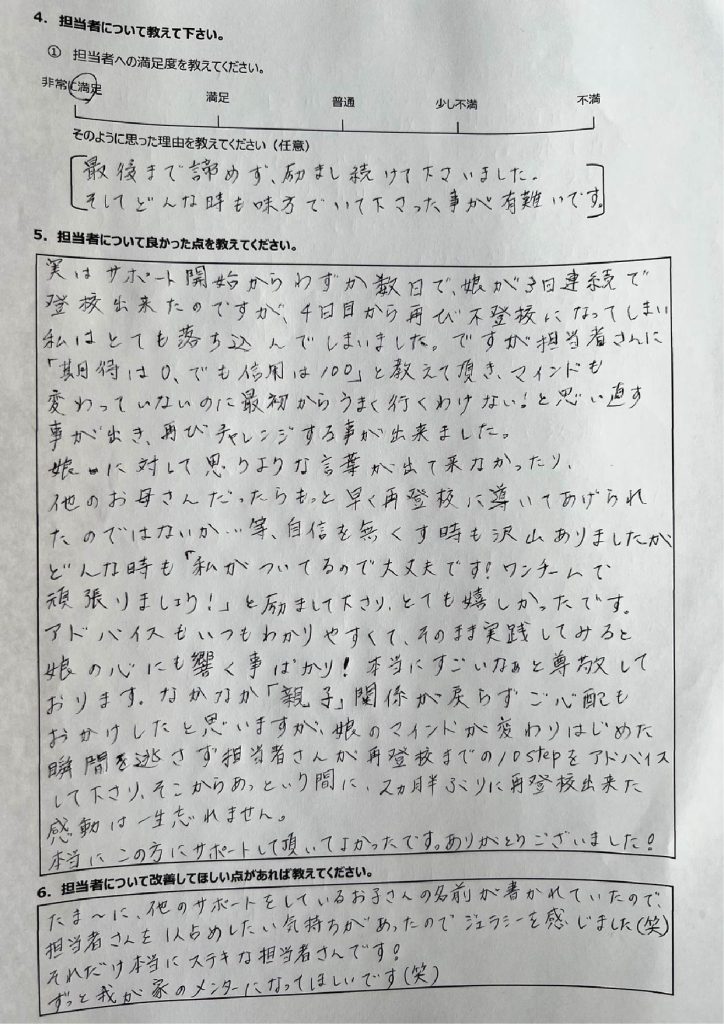 4．担当者について教えて下さい。
① 担当者への満足度を教えてください。
非常に満足 満足 普通 少し不満 不満
そのように思った理由を教えてください（任意）
最後まで諦めず、励まし続けて下さいました。
そしてどんな時も味方でいて下さった事が有難いです。
5．担当者について良かった点を教えてください。
実はサポート開始からわずか数日で、娘が3日連続で
登校出来たのですが、4日目から再び不登校になってしまい
私はとても落ち込んでしまいました。ですが担当者さんに
「期待は0、でも信用は100」と教えて頂き、マインドも
変わっていないのに最初からうまく行くわけない！と思い直す
事が出き、再びチャレンジする事が出来ました。
娘に対して思うような言葉が出て来なかったり、
他のお母さんだったらもっと早く再登校に導いてあげられ
たのではないか…等、自信を無くす時も沢山ありましたが
どんな時も「私がついてるので大丈夫です！ワンチームで
頑張りましょう！」と励まして下さり、とても嬉しかったです。
アドバイスもいつもわかりやすくて、そのまま実践してみると
娘の心にも響く事ばかり！本当にすごいなぁと尊敬して
おります。なかなか「親子」関係が戻らずご心配も
おかけしたと思いますが、娘のマインドが変わりはじめた
瞬間を逃さず担当者さんが再登校までの10stepをアドバイス
して下さり、そこからあっという間に、2ヵ月半ぶりに再登校出来た
感動は一生忘れません。
本当にこの方にサポートして頂いてよかったです。ありがとうございました！
6．担当者について改善してほしい点があれば教えてください。
たま〜に、他のサポートをしているお子さんの名前が書かれていたので、
担当者さんを1人占めしたい気持ちがあったのでジェラシーを感じました(笑)
それだけ本当にステキな担当者さんです！
ずっと我が家のメンターになってほしいです(笑)